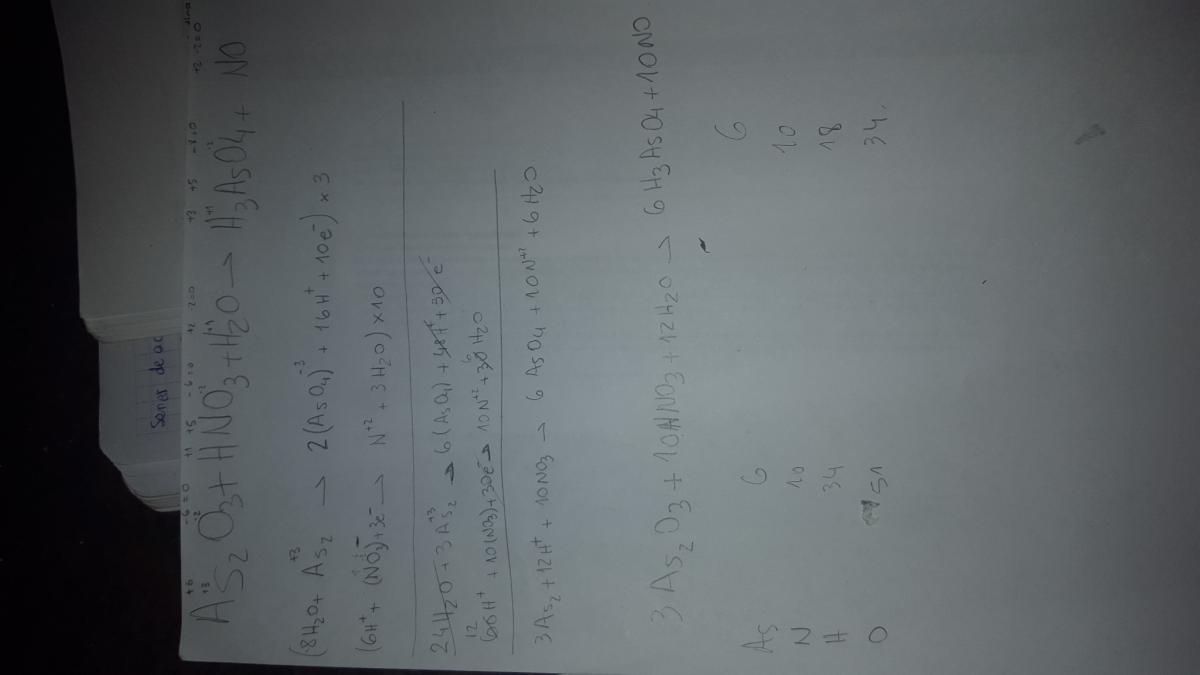 +6 -6=0 +1 +5 -6=0 +2 -2=0 +3 +5 -8=0 +2 -2=0
+3 -2 -2 +1 +1 -2
As2O3 + HNO3 + H2O → H3AsO4 + NO
(8H2O + As2⁺³ → 2(AsO4)⁻³ + 16H⁺ + 10e⁻) x 3
(6H⁺ + (NO3)⁻ + 3e⁻ → N⁺² + 3H2O) x 10
24H2O + 3As2⁺³ → 6(AsO4) + 48H⁺ + 30e⁻
12 6
60H⁺ + 10(NO3) + 30e⁻ → 10N⁺² + 30H2O
3As2 + 12H⁺ + 10NO3 → 6AsO4 + 10N⁺² + 6H2O
3As2O3 + 10HNO3 + 12H2O → 6H3AsO4 + 10NO
As 6 6
N 10 10
H 34 18
O 51 34.